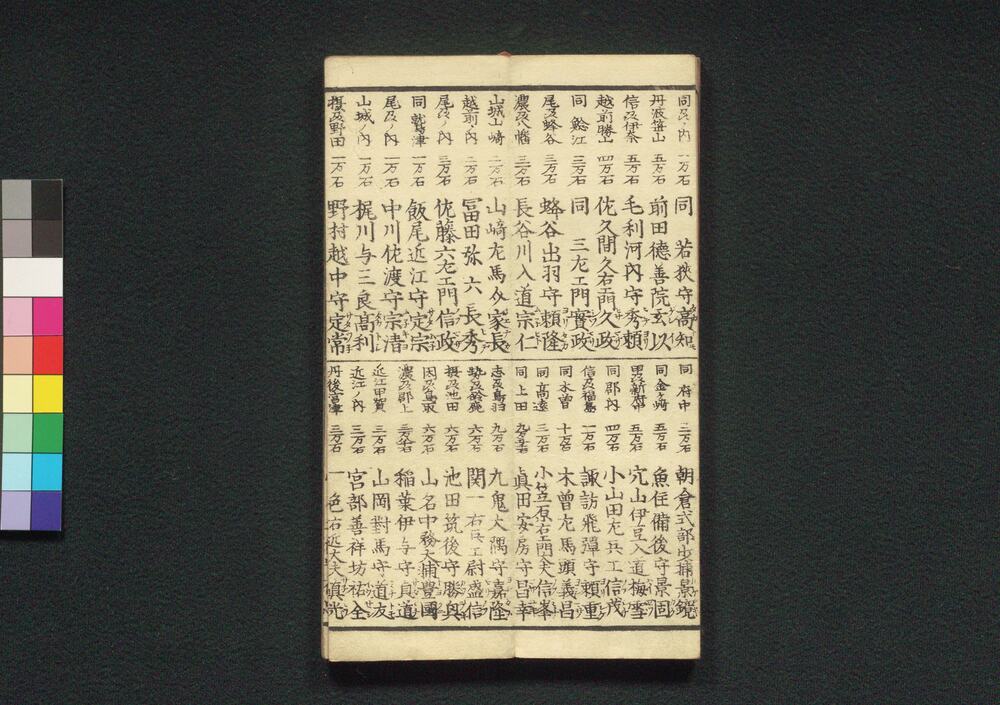 同及ノ内 一万石 同 若狭守高知
丹波笹山 五万石 前田徳善院玄以
信及伊奈 五万石 毛利河内守秀頼
越前勝山 四万石 佐久間久右エ門久政
同 鯰江 三万石 同 三左エ門實政
尾及蜂谷 三万石 蜂谷出羽守頼隆
濃及八幡 三万石 長谷川入道宗仁
山城山崎 二万石 山崎左馬允家長
越前ノ内 二万石 冨田弥六長秀
尾及ノ内 三万石 佐藤六左エ門信政
同 鷲津 一万石 飯尾近江守定宗
尾及ノ内 一万石 中川佐渡守宗清
山城ノ内 一万石 梶川与三良髙利
摂及野田 一万石 野村越中守定常
同 府中 二万石 朝倉式部少輔景鏡
同金ケ崎 五万石 魚住備後守景固
甲及新府中 五万石 穴山伊豆入道梅雪
同 郡内 四万石 小山田左兵エ信茂
信及福島 一万石 諏訪飛彈守頼重
同 木曽 十万石 木曽左馬頭義昌
同 高遠 三万石 小笠原右エ門大夫信峯
同 上田 眞田安房守昌幸
志及鳥羽 九万石 九鬼大隅守嘉隆
勢及鈴鹿 六万石 関一右兵エ尉盛信
摂及池田 六万石 池田筑後守勝興
因及鳥取 六万石 山名中務大輔豊國
濃及郡上 稲葉伊与守貞道
近江甲賀 三万石 山岡對馬守道友
近江ノ内 三万石 宮部善祥坊祐全
丹後宮津 二万石 一色右近大夫